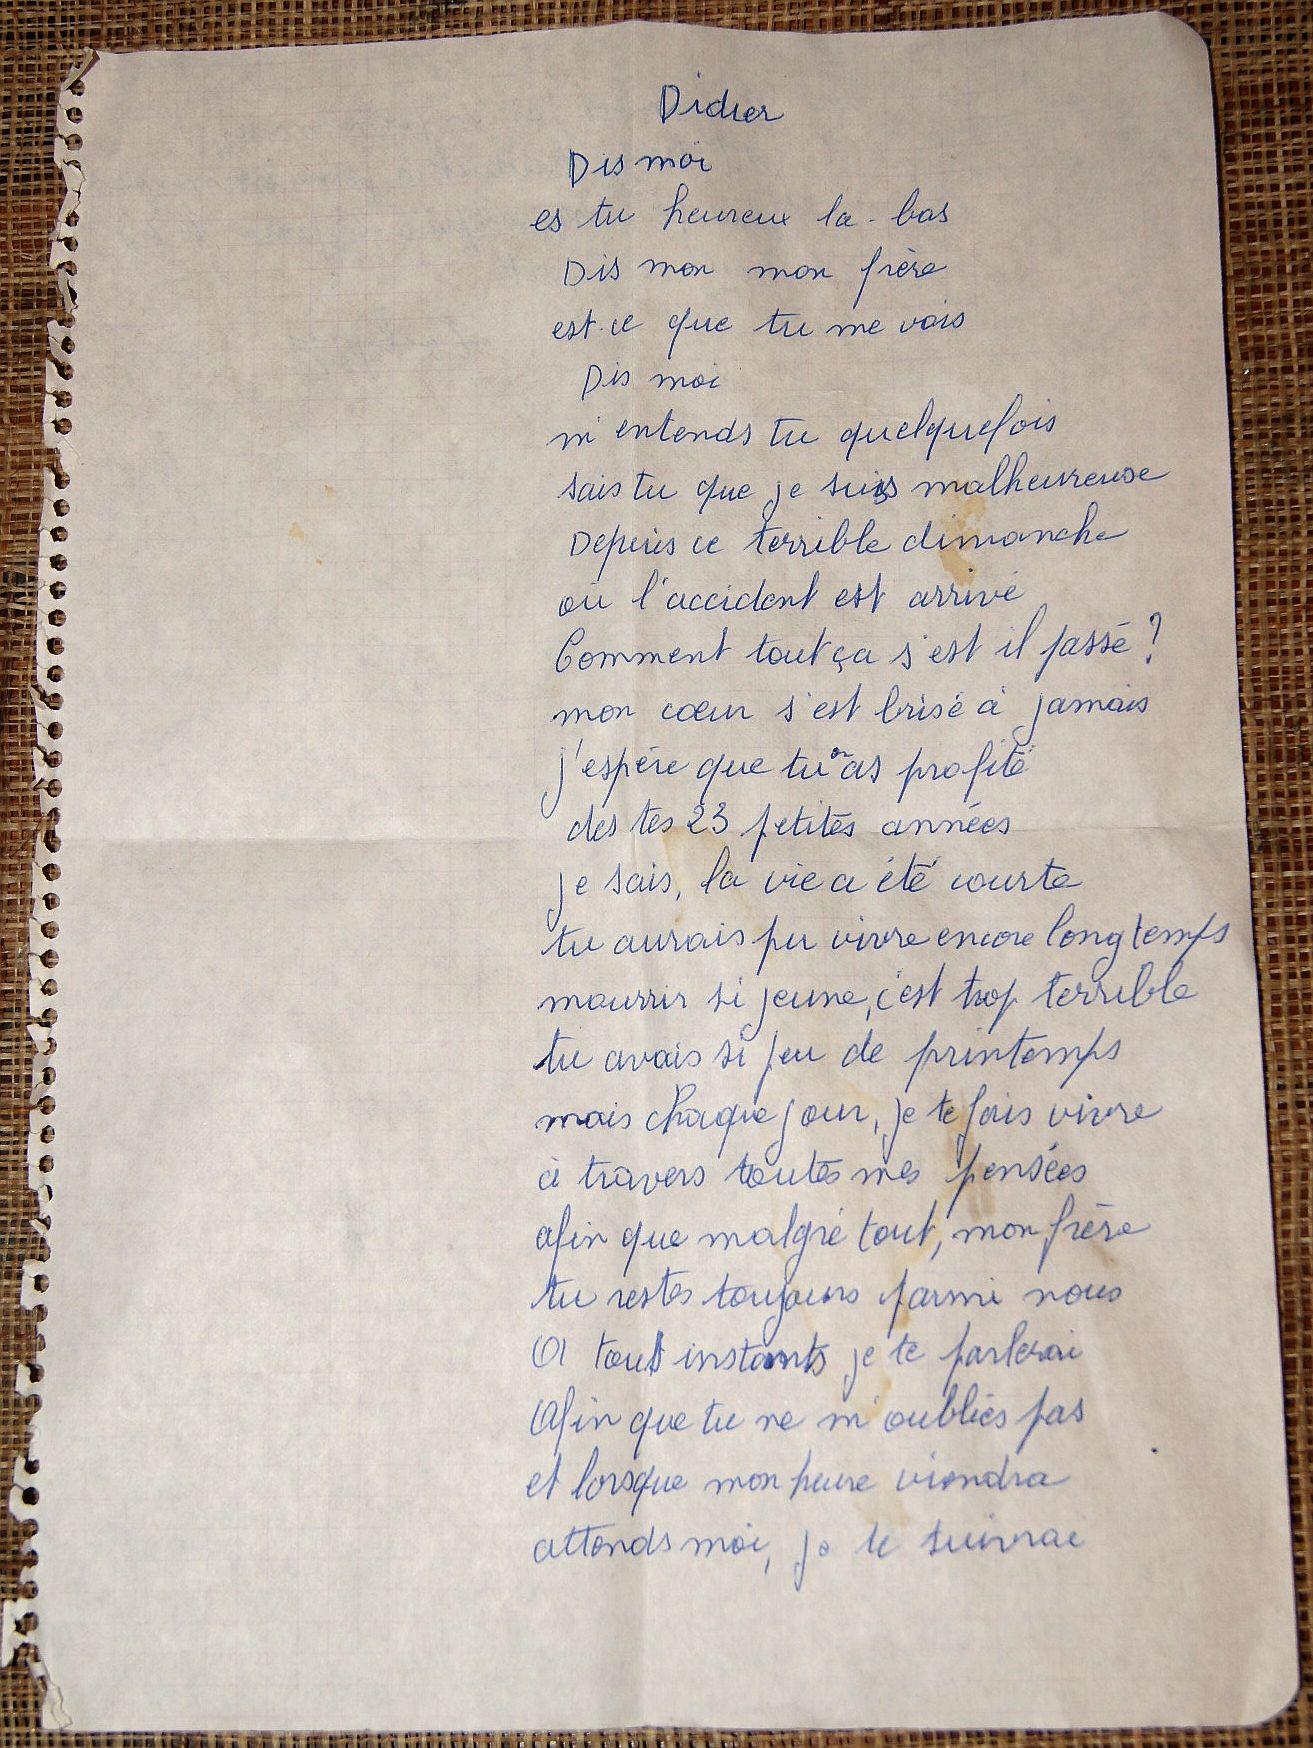 Didier
Dis moi
es tu heureux la-bas
Dis mon mon frère
est-ce que tu me vois
Dis moi
m'entends tu quelquefois
sais tu que je suis malheureuse
Depuis ce terrible dimanche
où l'accident est arrivé
Comment tout ça s'est il passé ?
mon cœur s'est brisé à jamais
j'espère que tu as profité
des tes 23 petites années
je sais, la vie a été courte
tu aurais pu vivre encore longtemps
mourrir si jeune, c'est trop terrible
tu avais si peu de printemps
mais chaque jour, je te fais vivre
à travers toutes mes pensées
afin que malgré tout, mon frère
tu restes toujours parmi nous
A tout instants je te parlerai
Afin que tu ne m'oublies pas
et lorsque mon heure viendra
attends moi, je te suivrai